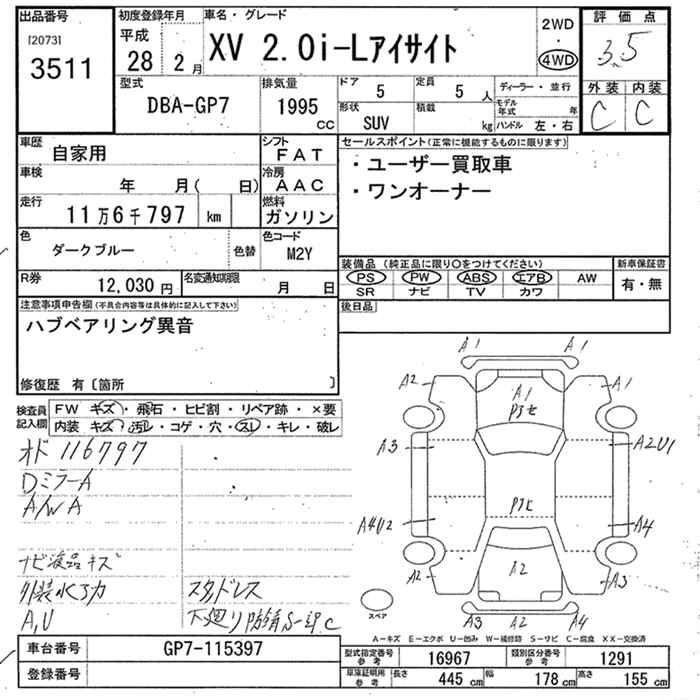 出品番号
[2073]
3511
初度登録年月
平成
28 2月
車名・グレード
XV 2.0i-Lアイサイト
2WD
・
4WD
評価点
3.5
外装 内装
C C
型式
DBA-GP7
排気量
1995
cc
ドア
5
定員
5 人
形状
SUV
積載
kg
ディーラー・並行
モデル年式 年
ハンドル 左・右
車歴
自家用
シフト
FAT
車検
年 月( 日)
冷房
AAC
走行
11万6千797 km
燃料
ガソリン
色
ダークブルー
色替
色コード
M2Y
R券
12,030円
名変通知期限
月 日
セールスポイント(正常に機能するものに限ります)
・ユーザー買取車
・ワンオーナー
装備品(純正品に限り○をつけてください)
PS PW ABS エアB AW
SR ナビ TV カワ
新車保証書
有・無
後日品
注意事項申告欄(不具合内容等は具体的に記入して下さい)
ハブベアリング異音
修復歴 有〔箇所 〕
検査員
記入欄
FW キズ・飛石・ヒビ割・リペア跡・×要
内装 キズ・汚レ・コゲ・穴・スレ・キレ・破レ
オド 116797
DミラーA
A/W A
ナビ液晶キズ
外装水アカ
A,U
スタドレス
下廻り防錆S-印C
A1 A1
A2 A1 A1
A3 A2U1
A4U2 A4
A2 A2 A3
A3 A2 A4
スペア
A-キズ E-エクボ U-凹み W-補修跡 S-サビ C-腐食 XX-交換済
車台番号
GP7-115397
登録番号
型式指定番号
参考
16967
類別区分番号
参考
1291
車庫証明用
参考
長さ
445 cm
幅
178 cm
高さ
155 cm